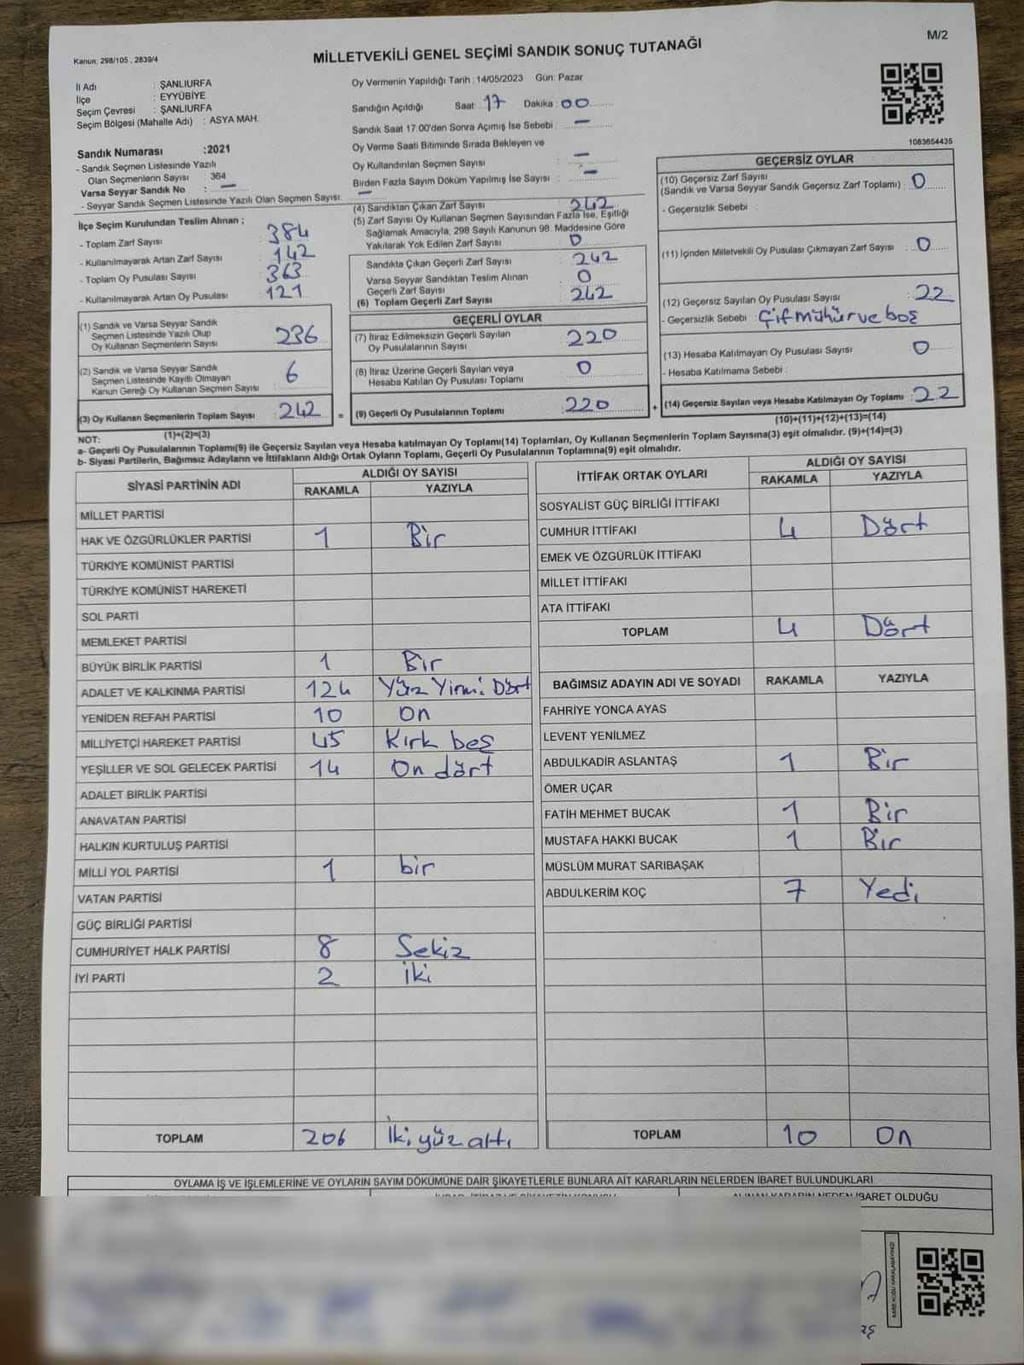 M/2
Kanun: 298/105 , 2839/4
MİLLETVEKİLİ GENEL SEÇİMİ SANDIK SONUÇ TUTANAĞI
İl Adı : ŞANLIURFA
İlçe : EYYÜBİYE
Seçim Çevresi : ŞANLIURFA
Seçim Bölgesi (Mahalle Adı) : ASYA MAH.
Sandık Numarası :2021
- Sandık Seçmen Listesinde Yazılı
Olan Seçmenlerin Sayısı 364
Varsa Seyyar Sandık No : –
- Seyyar Sandık Seçmen Listesinde Yazılı Olan Seçmen Sayısı: –
Oy Vermenin Yapıldığı Tarih : 14/05/2023 Gün: Pazar
Sandığın Açıldığı Saat: 17 Dakika : 00
Sandık Saat 17:00'den Sonra Açımış İse Sebebi : –
Oy Verme Saati Bitiminde Sırada Bekleyen ve
Oy Kullandırılan Seçmen Sayısı : –
Birden Fazla Sayım Döküm Yapılmış İse Sayısı : –
1083654435
İlçe Seçim Kurulundan Teslim Alınan ;
- Toplam Zarf Sayısı : 384
- Kullanılmayarak Artan Zarf Sayısı : 142
- Toplam Oy Pusulası Sayısı : 363
- Kullanılmayarak Artan Oy Pusulası : 121
(1) Sandık ve Varsa Seyyar Sandık
Seçmen Listesinde Yazılı Olup
Oy Kullanan Seçmenlerin Sayısı 236
(2) Sandık ve Varsa Seyyar Sandık
Seçmen Listesinde Kayıtlı Olmayan
Kanun Gereği Oy Kullanan Seçmen Sayısı 6
(3) Oy Kullanan Seçmenlerin Toplam Sayısı 242 =
(1)+(2)=(3)
(4) Sandıktan Çıkan Zarf Sayısı : 242
(5) Zarf Sayısı Oy Kullanan Seçmen Sayısından Fazla İse, Eşitliği
Sağlamak Amacıyla, 298 Sayılı Kanunun 98. Maddesine Göre
Yakılarak Yok Edilen Zarf Sayısı : 0
Sandıkta Çıkan Geçerli Zarf Sayısı : 242
Varsa Seyyar Sandıktan Teslim Alınan
Geçerli Zarf Sayısı : 0
(6) Toplam Geçerli Zarf Sayısı : 242
GEÇERLİ OYLAR
(7) İtiraz Edilmeksizin Geçerli Sayılan
Oy Pusulalarının Sayısı : 220
(8) İtiraz Üzerine Geçerli Sayılan veya
Hesaba Katılan Oy Pusulası Toplamı : 0
(9) Geçerli Oy Pusulalarının Toplamı : 220 +
GEÇERSİZ OYLAR
(10) Geçersiz Zarf Sayısı
(Sandık ve Varsa Seyyar Sandık Geçersiz Zarf Toplamı) : 0
- Geçersizlik Sebebi :
(11) İçinden Milletvekili Oy Pusulası Çıkmayan Zarf Sayısı : 0
(12) Geçersiz Sayılan Oy Pusulası Sayısı : 22
- Geçersizlik Sebebi : Çif mühür ve boş
(13) Hesaba Katılmayan Oy Pusulası Sayısı : 0
- Hesaba Katılmama Sebebi :
(14) Geçersiz Sayılan veya Hesaba Katılmayan Oy Toplamı : 22
(10)+(11)+(12)+(13)=(14)
NOT:
a- Geçerli Oy Pusulalarının Toplamı(9) ile Geçersiz Sayılan veya Hesaba katılmayan Oy Toplamı(14) Toplamları, Oy Kullanan Seçmenlerin Toplam Sayısına(3) eşit olmalıdır. (9)+(14)=(3)
b- Siyasi Partilerin, Bağımsız Adayların ve İttifakların Aldığı Ortak Oyların Toplamı, Geçerli Oy Pusulalarının Toplamına(9) eşit olmalıdır.
SİYASİ PARTİNİN ADI ALDIĞI OY SAYISI
RAKAMLA YAZIYLA
MİLLET PARTİSİ
HAK VE ÖZGÜRLÜKLER PARTİSİ 1 Bir
TÜRKİYE KOMÜNİST PARTİSİ
TÜRKİYE KOMÜNİST HAREKETİ
SOL PARTİ
MEMLEKET PARTİSİ
BÜYÜK BİRLİK PARTİSİ 1 Bir
ADALET VE KALKINMA PARTİSİ 124 Yüz Yirmi Dört
YENİDEN REFAH PARTİSİ 10 On
MİLLİYETÇİ HAREKET PARTİSİ 45 Kırk beş
YEŞİLLER VE SOL GELECEK PARTİSİ 14 On dört
ADALET BİRLİK PARTİSİ
ANAVATAN PARTİSİ
HALKIN KURTULUŞ PARTİSİ
MİLLİ YOL PARTİSİ 1 bir
VATAN PARTİSİ
GÜÇ BİRLİĞİ PARTİSİ
CUMHURİYET HALK PARTİSİ 8 Sekiz
İYİ PARTİ 2 İki
TOPLAM 206 İki yüz altı
İTTİFAK ORTAK OYLARI ALDIĞI OY SAYISI
RAKAMLA YAZIYLA
SOSYALİST GÜÇ BİRLİĞİ İTTİFAKI
CUMHUR İTTİFAKI 4 Dört
EMEK VE ÖZGÜRLÜK İTTİFAKI
MİLLET İTTİFAKI
ATA İTTİFAKI
TOPLAM 4 Dört
BAĞIMSIZ ADAYIN ADI VE SOYADI RAKAMLA YAZIYLA
FAHRİYE YONCA AYAS
LEVENT YENİLMEZ
ABDULKADİR ASLANTAŞ 1 Bir
ÖMER UÇAR
FATİH MEHMET BUCAK 1 Bir
MUSTAFA HAKKI BUCAK 1 Bir
MÜSLÜM MURAT SARIBAŞAK
ABDULKERİM KOÇ 7 Yedi
TOPLAM 10 On
OYLAMA İŞ VE İŞLEMLERİNE VE OYLARIN SAYIM DÖKÜMÜNE DAİR ŞİKAYETLERLE BUNLARA AİT KARARLARIN NELERDEN İBARET BULUNDUKLARI
İBARET OLDUĞU